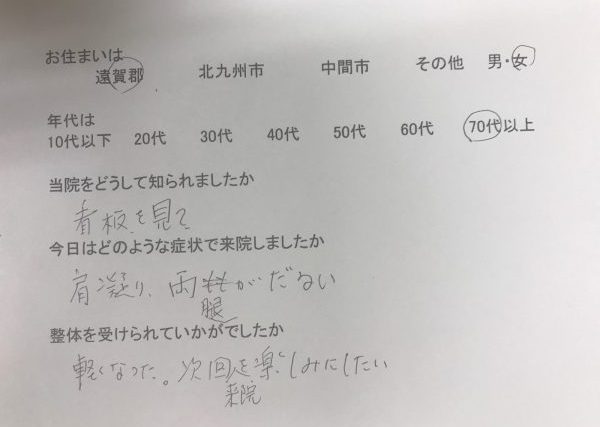 お住まいは
遠賀郡 北九州市 中間市 その他 男・女
年代は
10代以下 20代 30代 40代 50代 60代 70代以上
当院をどうして知られましたか
看板を見て
今日はどのような症状で来院しましたか
肩凝り、両ももがだるい
腿
整体を受けられていかがでしたか
軽くなった。次回を楽しみにしたい
来院